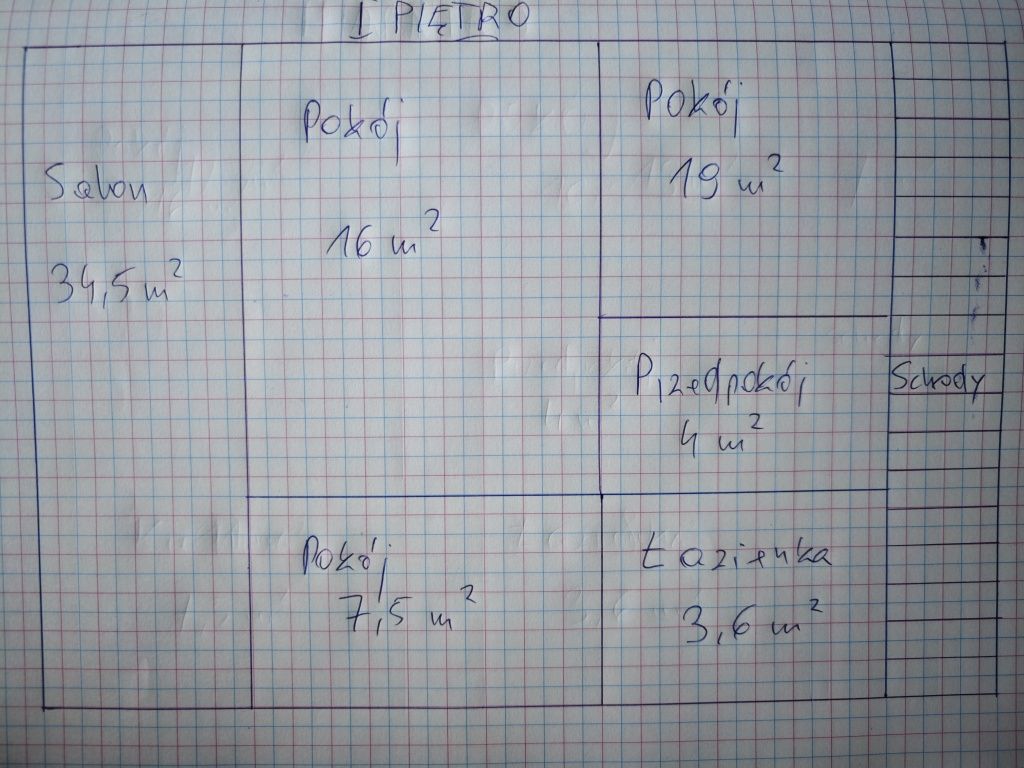 I PIĘTRO
Salon
34,5 m²
Pokój
16 m²
Pokój
19 m²
Przedpokój
4 m²
Schody
Pokój
7,5 m²
Łazienka
3,6 m²